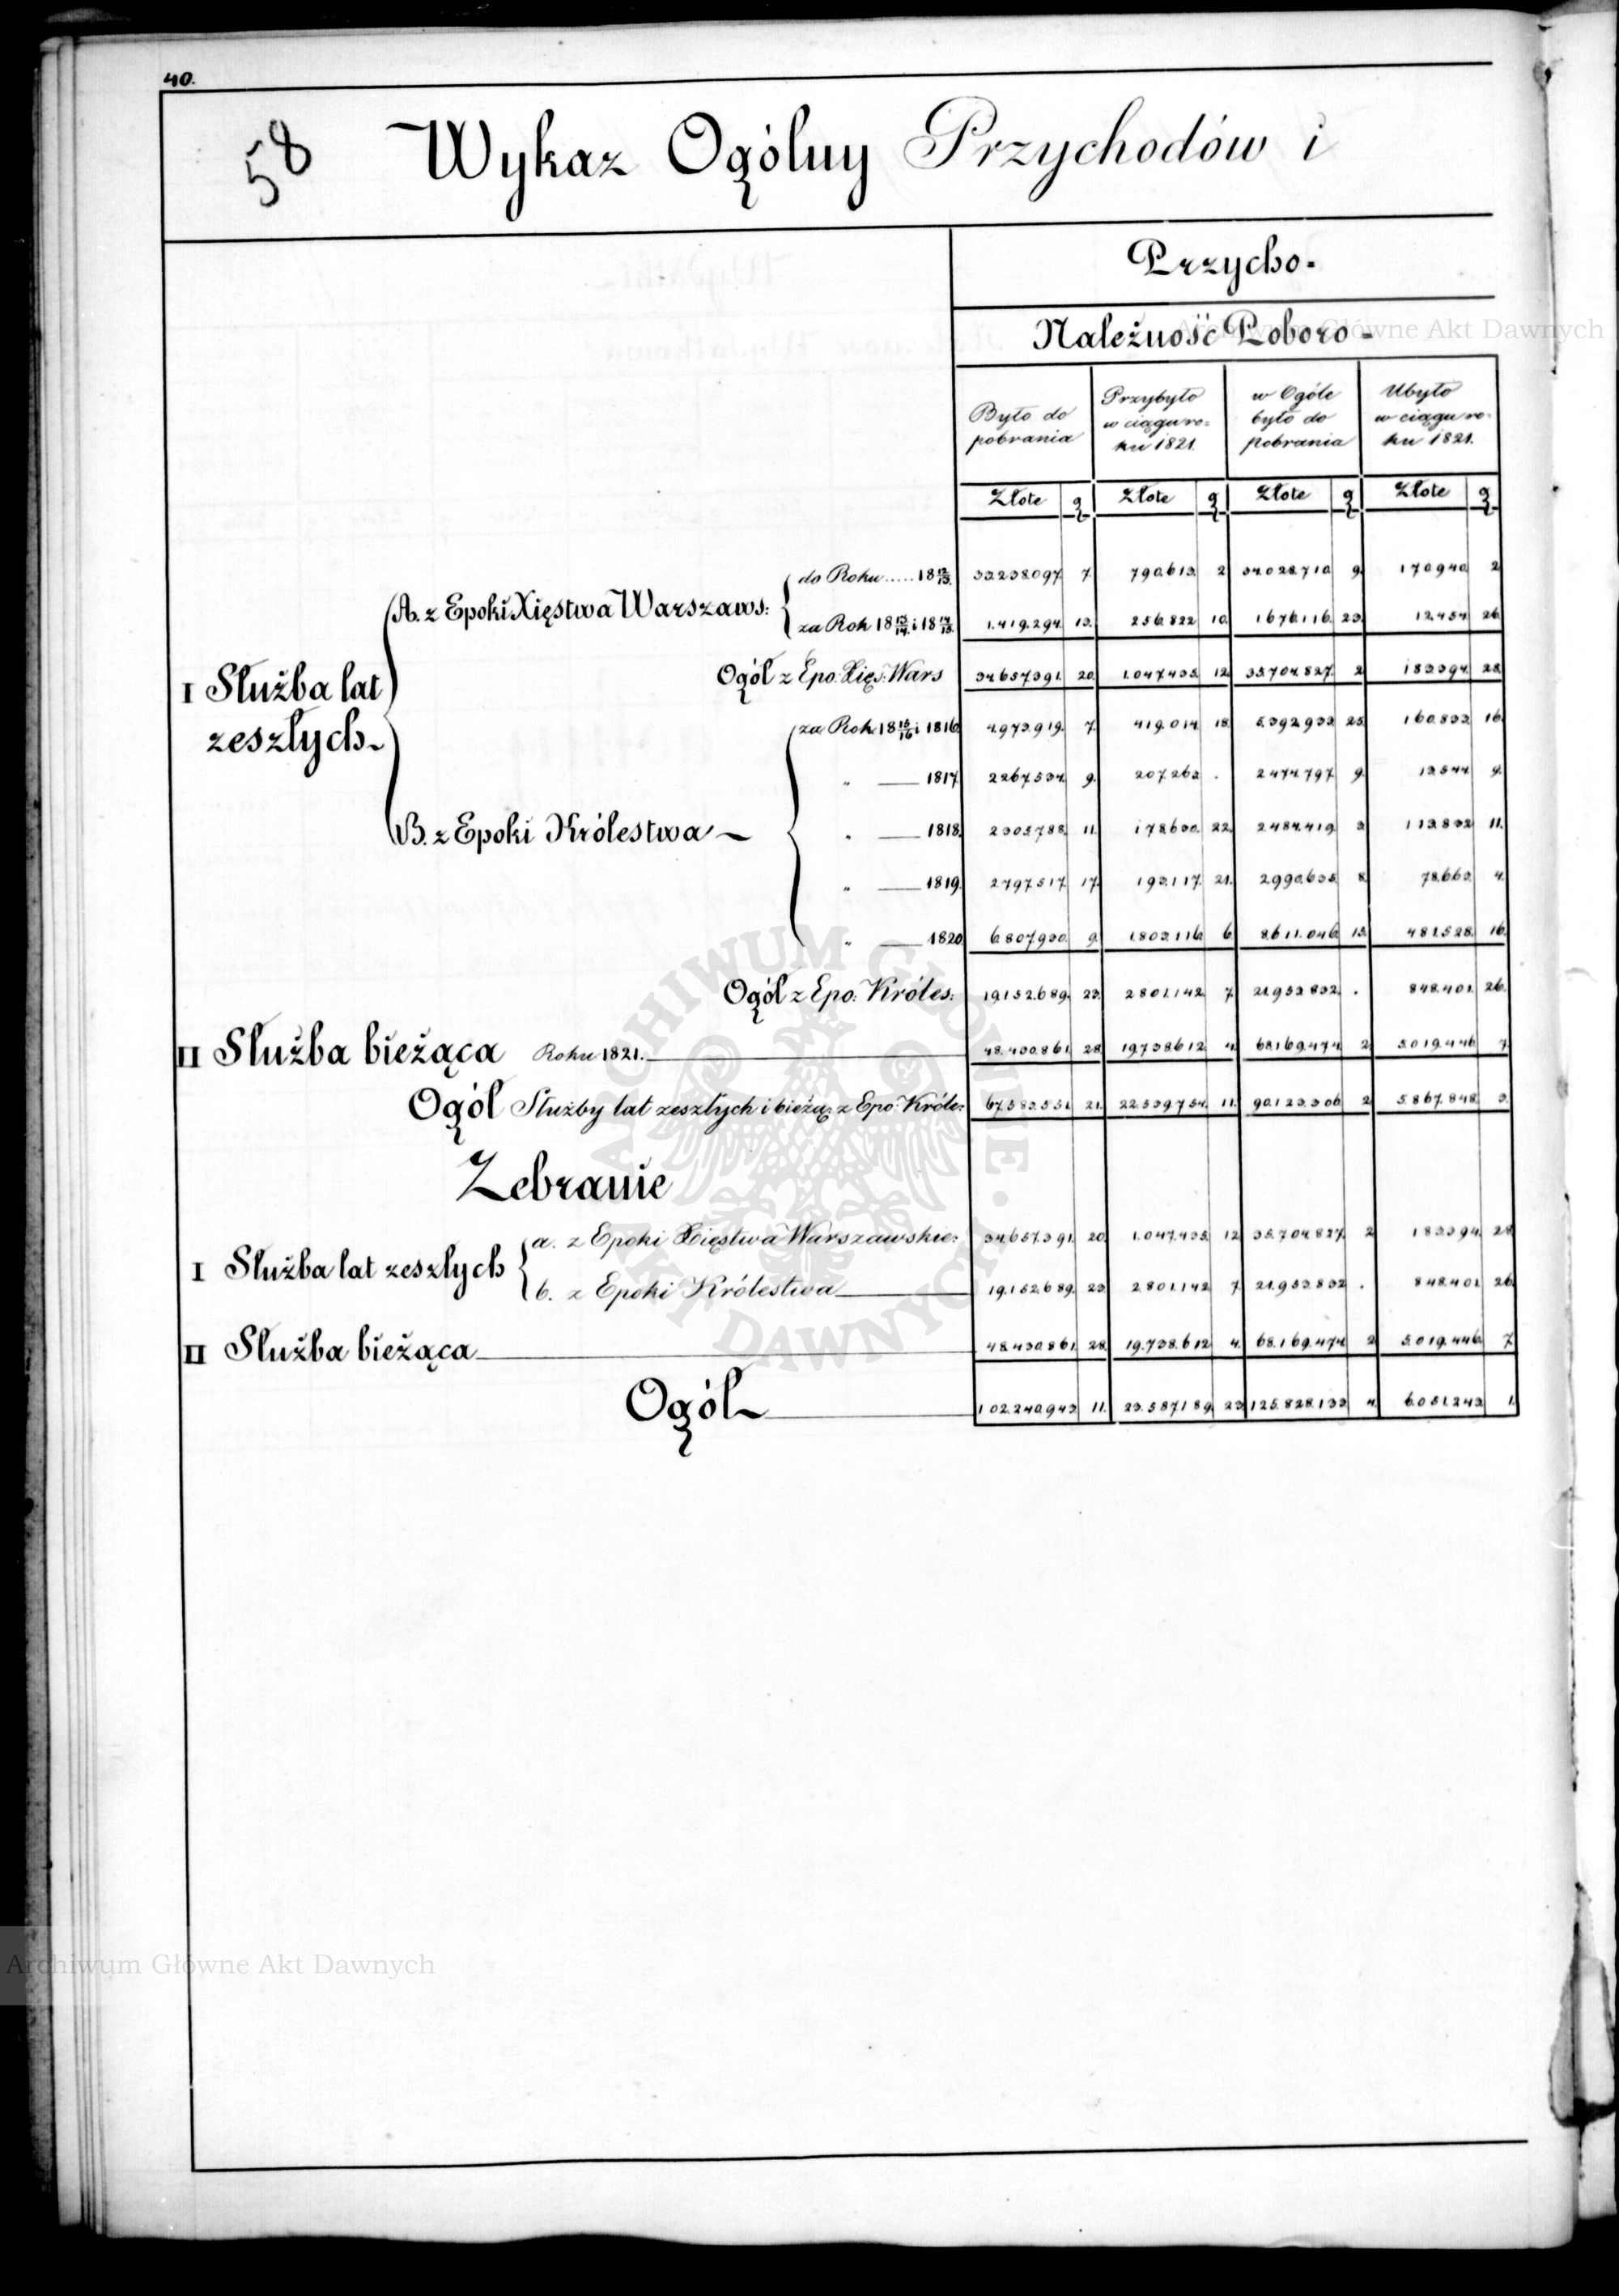 40.
58 Wykaz Ogólny Przychodów i
Przycho-
Należność Poboro-
Było do pobrania
Przybyło w ciągu ro= ku 1821.
w Ogóle było do pobrania
Ubyło w ciągu ro- ku 1821.
Złote g Złote g Złote g Złote g
I Służba lat zeszłych
A. z Epoki Xięstwa Warszaws:
do Roku ..... 18 12/13. 33.238.097 7. 790.613 2 34.028.710 9. 170.940 2
za Rok 18 13/14. i 18 14/15. 1.419.294. 13. 256.822 10. 1.676.116. 23. 12.454 26
Ogół z Epo: Xięs: Wars 34.657.391. 20. 1.047.435 12 35.704.827. 2 183.394 28
B. z Epoki Królestwa
za Rok 18 15/16 i 1816. 4.973.919. 7. 419.014 18. 5.392.933 25. 160.833. 16.
„ — 1817. 2.267.534 9. 207.263 . 2.474.797 9. 13.544 9.
„ — 1818. 2.305.788. 11. 178.630. 22. 2.484.419 3 113.832 11.
„ — 1819. 2.797.517 17. 193.117. 21. 2.990.635 8. 78.663. 4.
„ — 1820. 6.807.930. 9. 1.803.116. 6. 8.611.046. 15. 481.528. 16.
Ogół z Epo: Króles: 19.152.689. 23. 2.801.142 7. 21.953.832. . 848.401. 26.
II Służba bieżąca Roku 1821. 48.430.861. 28. 19.738.612 4. 68.169.474 2 5.019.446 7.
Ogół Służby lat zeszłych i bieżą: z Epo: Króle: 67.583.551. 21. 22.539.754. 11. 90.123.306 2 5.867.848. 3.
Zebranie
I Służba lat zeszłych
a. z Epoki Xięstwa Warszawskie: 34.657.391. 20. 1.047.435. 12 35.704.827. 2 183.394. 28
b. z Epoki Królestwa 19.152.689. 23. 2.801.142 7. 21.953.832 . 848.401. 26.
II Służba bieżąca 48.430.861. 28. 19.738.612 4. 68.169.474. 2 5.019.446. 7.
Ogół 102.240.943 11. 23.587.189. 23 125.828.133 4. 6.051.243 1.
Archiwum Główne Akt Dawnych
ARCHIWUM GŁÓWNE AKT DAWNYCH
Archiwum Główne Akt Dawnych